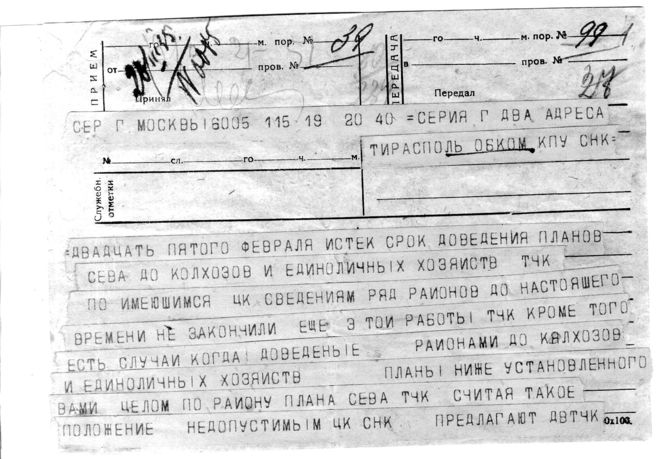 ПРИЕМ
го ч. м. пор. № 39
от пров. №
Принял
ПЕРЕДАЧА
го ч. м. пор. № 99
в пров. №
Передал 27
СЕР Г МОСКВЫ 16005 115 19 20 40 =СЕРИЯ Г ДВА АДРЕСА
ТИРАСПОЛЬ ОБКОМ КПУ СНК=
№ сл. го ч. м.
Служебн. отметки
=ДВАДЦАТЬ ПЯТОГО ФЕВРАЛЯ ИСТЕК СРОК ДОВЕДЕНИЯ ПЛАНОВ
СЕВА ДО КОЛХОЗОВ И ЕДИНОЛИЧНЫХ ХОЗЯИСТВ ТЧК
ПО ИМЕЮШИМСЯ ЦК СВЕДЕНИЯМ РЯД РАИОНОВ ДО НАСТОЯШЕГО
ВРЕМЕНИ НЕ ЗАКОНЧИЛИ ЕЩЕ ЭТОИ РАБОТЫ ТЧК КРОМЕ ТОГО
ЕСТЬ СЛУЧАИ КОГДА ДОВЕДЕНЫЕ РАИОНАМИ ДО КОЛХОЗОВ
И ЕДИНОЛИЧНЫХ ХОЗЯИСТВ ПЛАНЫ НИЖЕ УСТАНОВЛЕННОГО
ВАМИ ЦЕЛОМ ПО РАИОНУ ПЛАНА СЕВА ТЧК СЧИТАЯ ТАКОЕ
ПОЛОЖЕНИЕ НЕДОПУСТИМЫМ ЦК СНК ПРЕДЛАГАЮТ ДВТЧК
0х100.